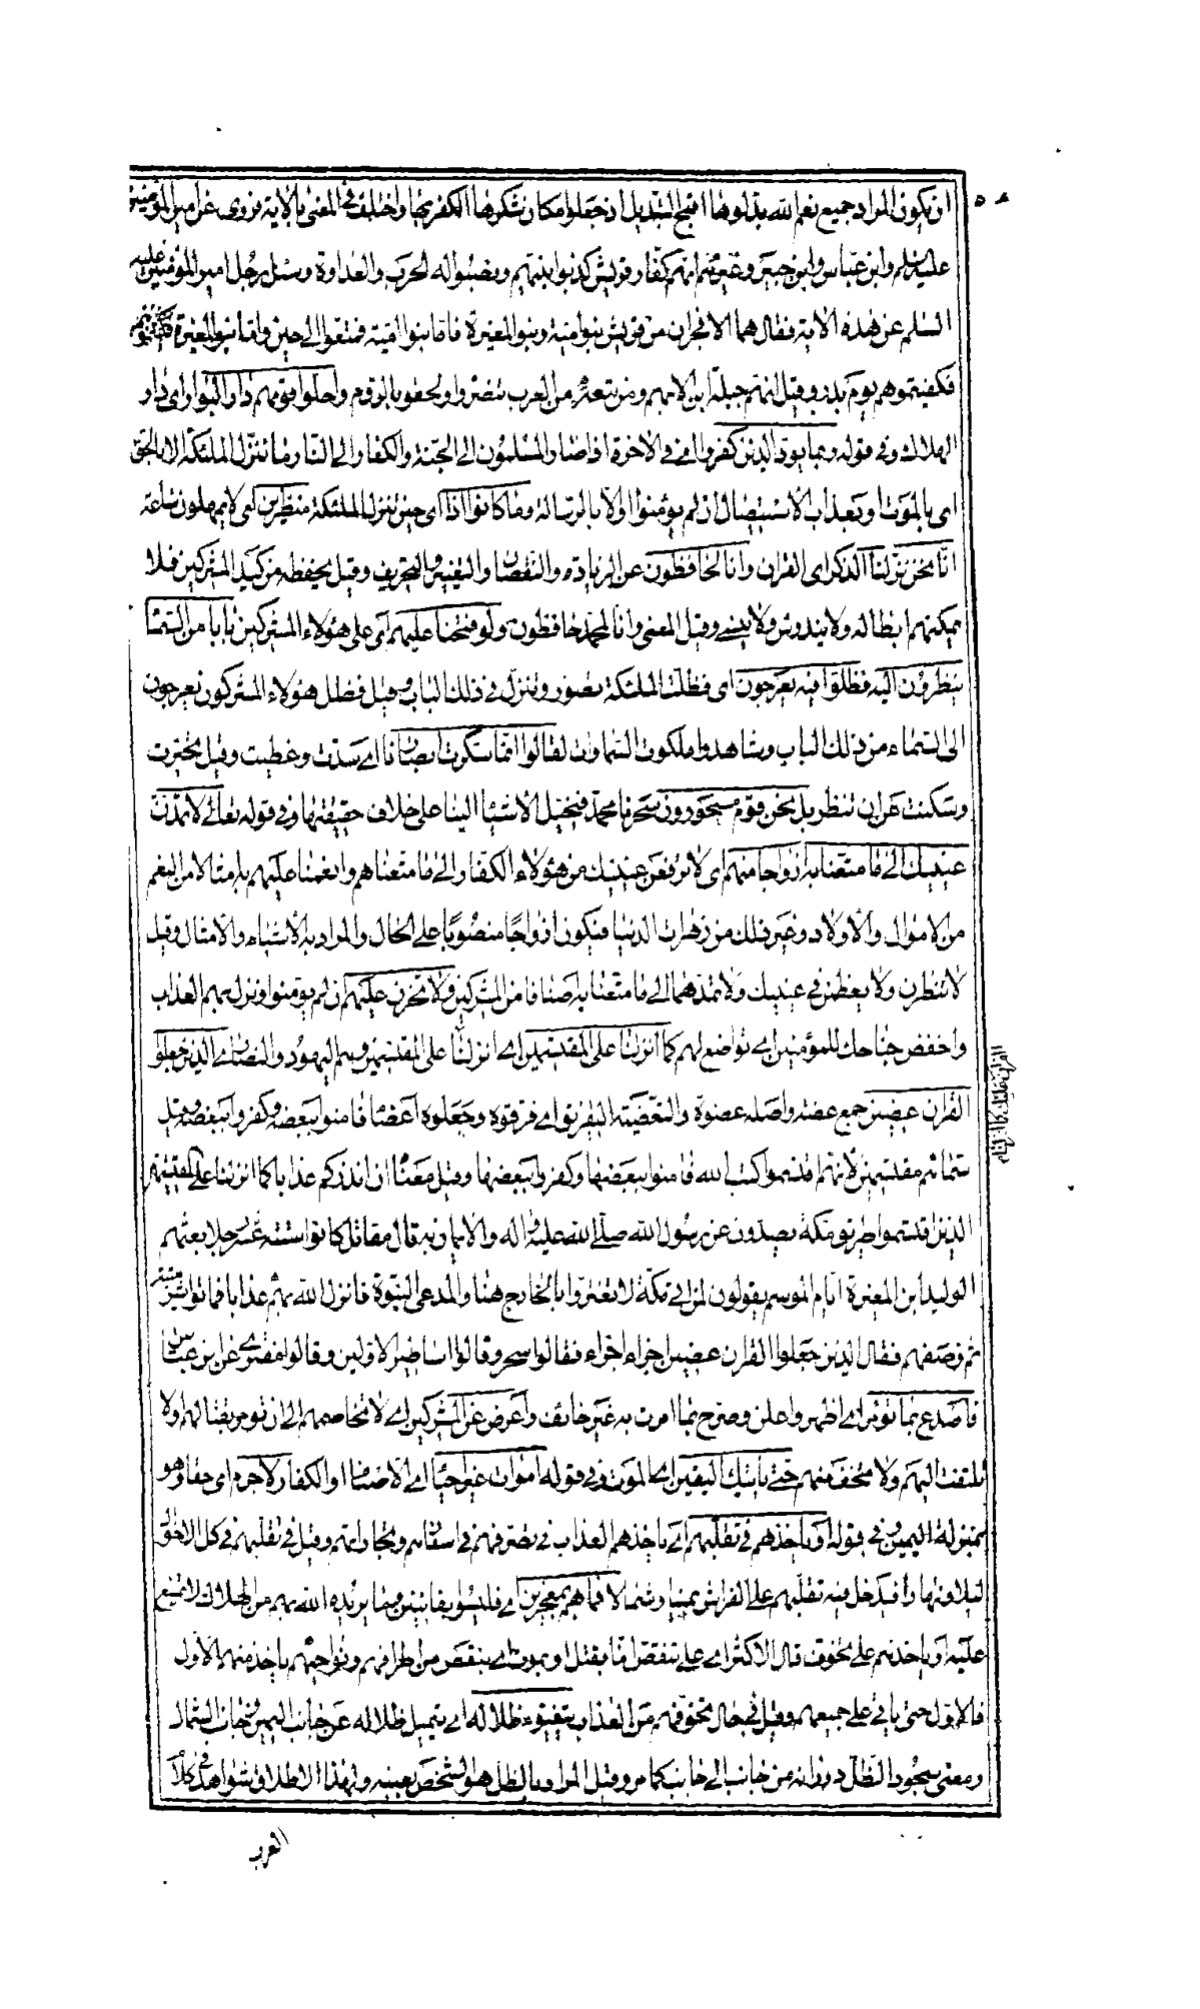 ان يكون المراد جميع نعم الله بدلوها اقبح التبديل اذ جعلوا مكان شكرها الكفر بها واختلف فى المعنى بالاية فروى عن امير المؤمنين
عليه السلم وابن عباس وابن جبير وغيرهم انهم كفار قريش كذبوا نبيهم ونصبوا له الحرب والعداوة وسئل رجل امير المؤمنين عليه
السلم عن هذه الاية فقال هما الافجران من قريش بنو امية وبنو المغيرة فاما بنو امية فمتعوا الى حين واما بنو المغيرة
فكفيتموهم يوم بدر وقيل انهم جبلة ابن الايهم ومن تبعه من العرب تنصروا ولحقوا بالروم واحلوا قومهم دار البوار اى دار
الهلاك وفى قوله ربما يود الذين كفروا اى فى الاخرة اذا صار المسلمون الى الجنة والكفار الى النار ما ننزل الملئكة الا بالحق
اى بالموت او بعذاب الاستيصال ان لم يؤمنوا او الا بالرسالة وما كانوا اذا اى حين تنزل الملئكة منظرين اى لا يمهلون ساعة
انا نحن نزلنا الذكر اى القران وانا له لحافظون عن الزيادة والنقصان والتغيير والتحريف وقيل يحفظه من كيد المشركين فلا
يمكنهم ابطاله ولا يندرس ولا ينسى وقيل المعنى وانا لمحمد حافظون ولو فتحنا عليهم اى على هؤلاء المشركين بابا من السماء
ينظرون اليه فظلوا فيه يعرجون اى فظلت الملئكة تصعد وتنزل فى ذلك الباب وقيل فظل هؤلاء المشركون يعرجون
الى السماء من ذلك الباب وشاهدوا ملكوت السماوات لقالوا انما سكرت ابصارنا اى سدت وغطيت وقيل تحيرت
وسكنت عن ان تنظر بل نحن قوم مسحورون سحرنا محمد فيخيل الاشياء الينا على خلاف حقيقتها وفى قوله تعالى لا تمدن
عينيك الى ما متعنا به ازواجا منهم اى لا ترفعن عينيك من هؤلاء الكفار الى ما متعناهم وانعمنا عليهم به امثالا من النعم
من الاموال والاولاد وغير ذلك من زهرات الدنيا فيكون ازواجا منصوبا على الحال والمراد به الاشباه والامثال وقيل
لا تنظرن ولا يعظمن فى عينيك ولا تمدهما الى ما متعنا به اصنافا من المشركين ولا تحزن عليهم ان لم يؤمنوا ونزل بهم العذاب
واخفض جناحك للمؤمنين اى تواضع لهم كما انزلنا على المقتسمين اى انزلنا على المقتسمين وهم اليهود والنصارى الذين جعلوا
القران عضين جمع عضة واصله عضوة والتعضية التفريق اى فرقوه وجعلوه اعضاء فامنوا ببعضه وكفروا ببعضه وقيل
سماهم مقتسمين لانهم اقتسموا كتب الله فامنوا ببعضها وكفروا ببعضها وقيل معناه ان انذركم عذابا كما انزلنا على المقتسمين
الذين اقتسموا طريق مكة يصدون عن رسول الله صلى الله عليه واله والايمان به قال مقاتل كانوا ستة عشر رجلا بعثهم
الوليد ابن المغيرة ايام الموسم يقولون لمن اتى مكة لا تغتروا بالخارج هنا والمدعى النبوة فانزل الله بهم عذابا فماتوا شر ميتة
ثم وصفهم فقال الذين جعلوا القران عضين اجزاء اجزاء فقالوا سحر وقالوا اساطير الاولين وقالوا مفترى عن ابن عباس
فاصدع بما تؤمر اى اظهر واعلن وصرح بما امرت به غير خائف واعرض عن المشركين اى لا تخاصمهم الى ان تؤمر بقتالهم ولا
تلتفت اليهم ولا تخف منهم حتى ياتيك اليقين اى الموت وفى قوله اموات غير احياء اى الاصنام او الكفار لا جرم اى حقا وهو
بمنزلة اليمين وفى قوله او ياخذهم فى تقلبهم اى ياخذهم العذاب فى تصرفهم فى اسفارهم وتجاراتهم وقيل فى تقلبهم فى كل الاحوال
ليلا ونهارا فيدخل فيه تقلبهم على الفراش يمينا وشمالا فما هم بمعجزين اى فليسوا بفائتين وما يريده الله بهم من الهلاك لا يمتنع
عليه او ياخذهم على تخوف قال الاكثر اى على تنقص اما بقتل او بموت اى ينقص من اطرافهم ونواحيهم ياخذ منهم الاول
فالاول حتى ياتى على جميعهم وقيل فى حال تخوفهم من العذاب يتفيؤ ظلاله اى يتميل ظلاله عن جانب اليمين وجانب الشمال
ومعنى سجود الظل دورانه من جانب الى جانب كما مر وقيل المراد بالظل هو الشخص بعينه ولهذا الاطلاق شواهد فى كلام
العرب